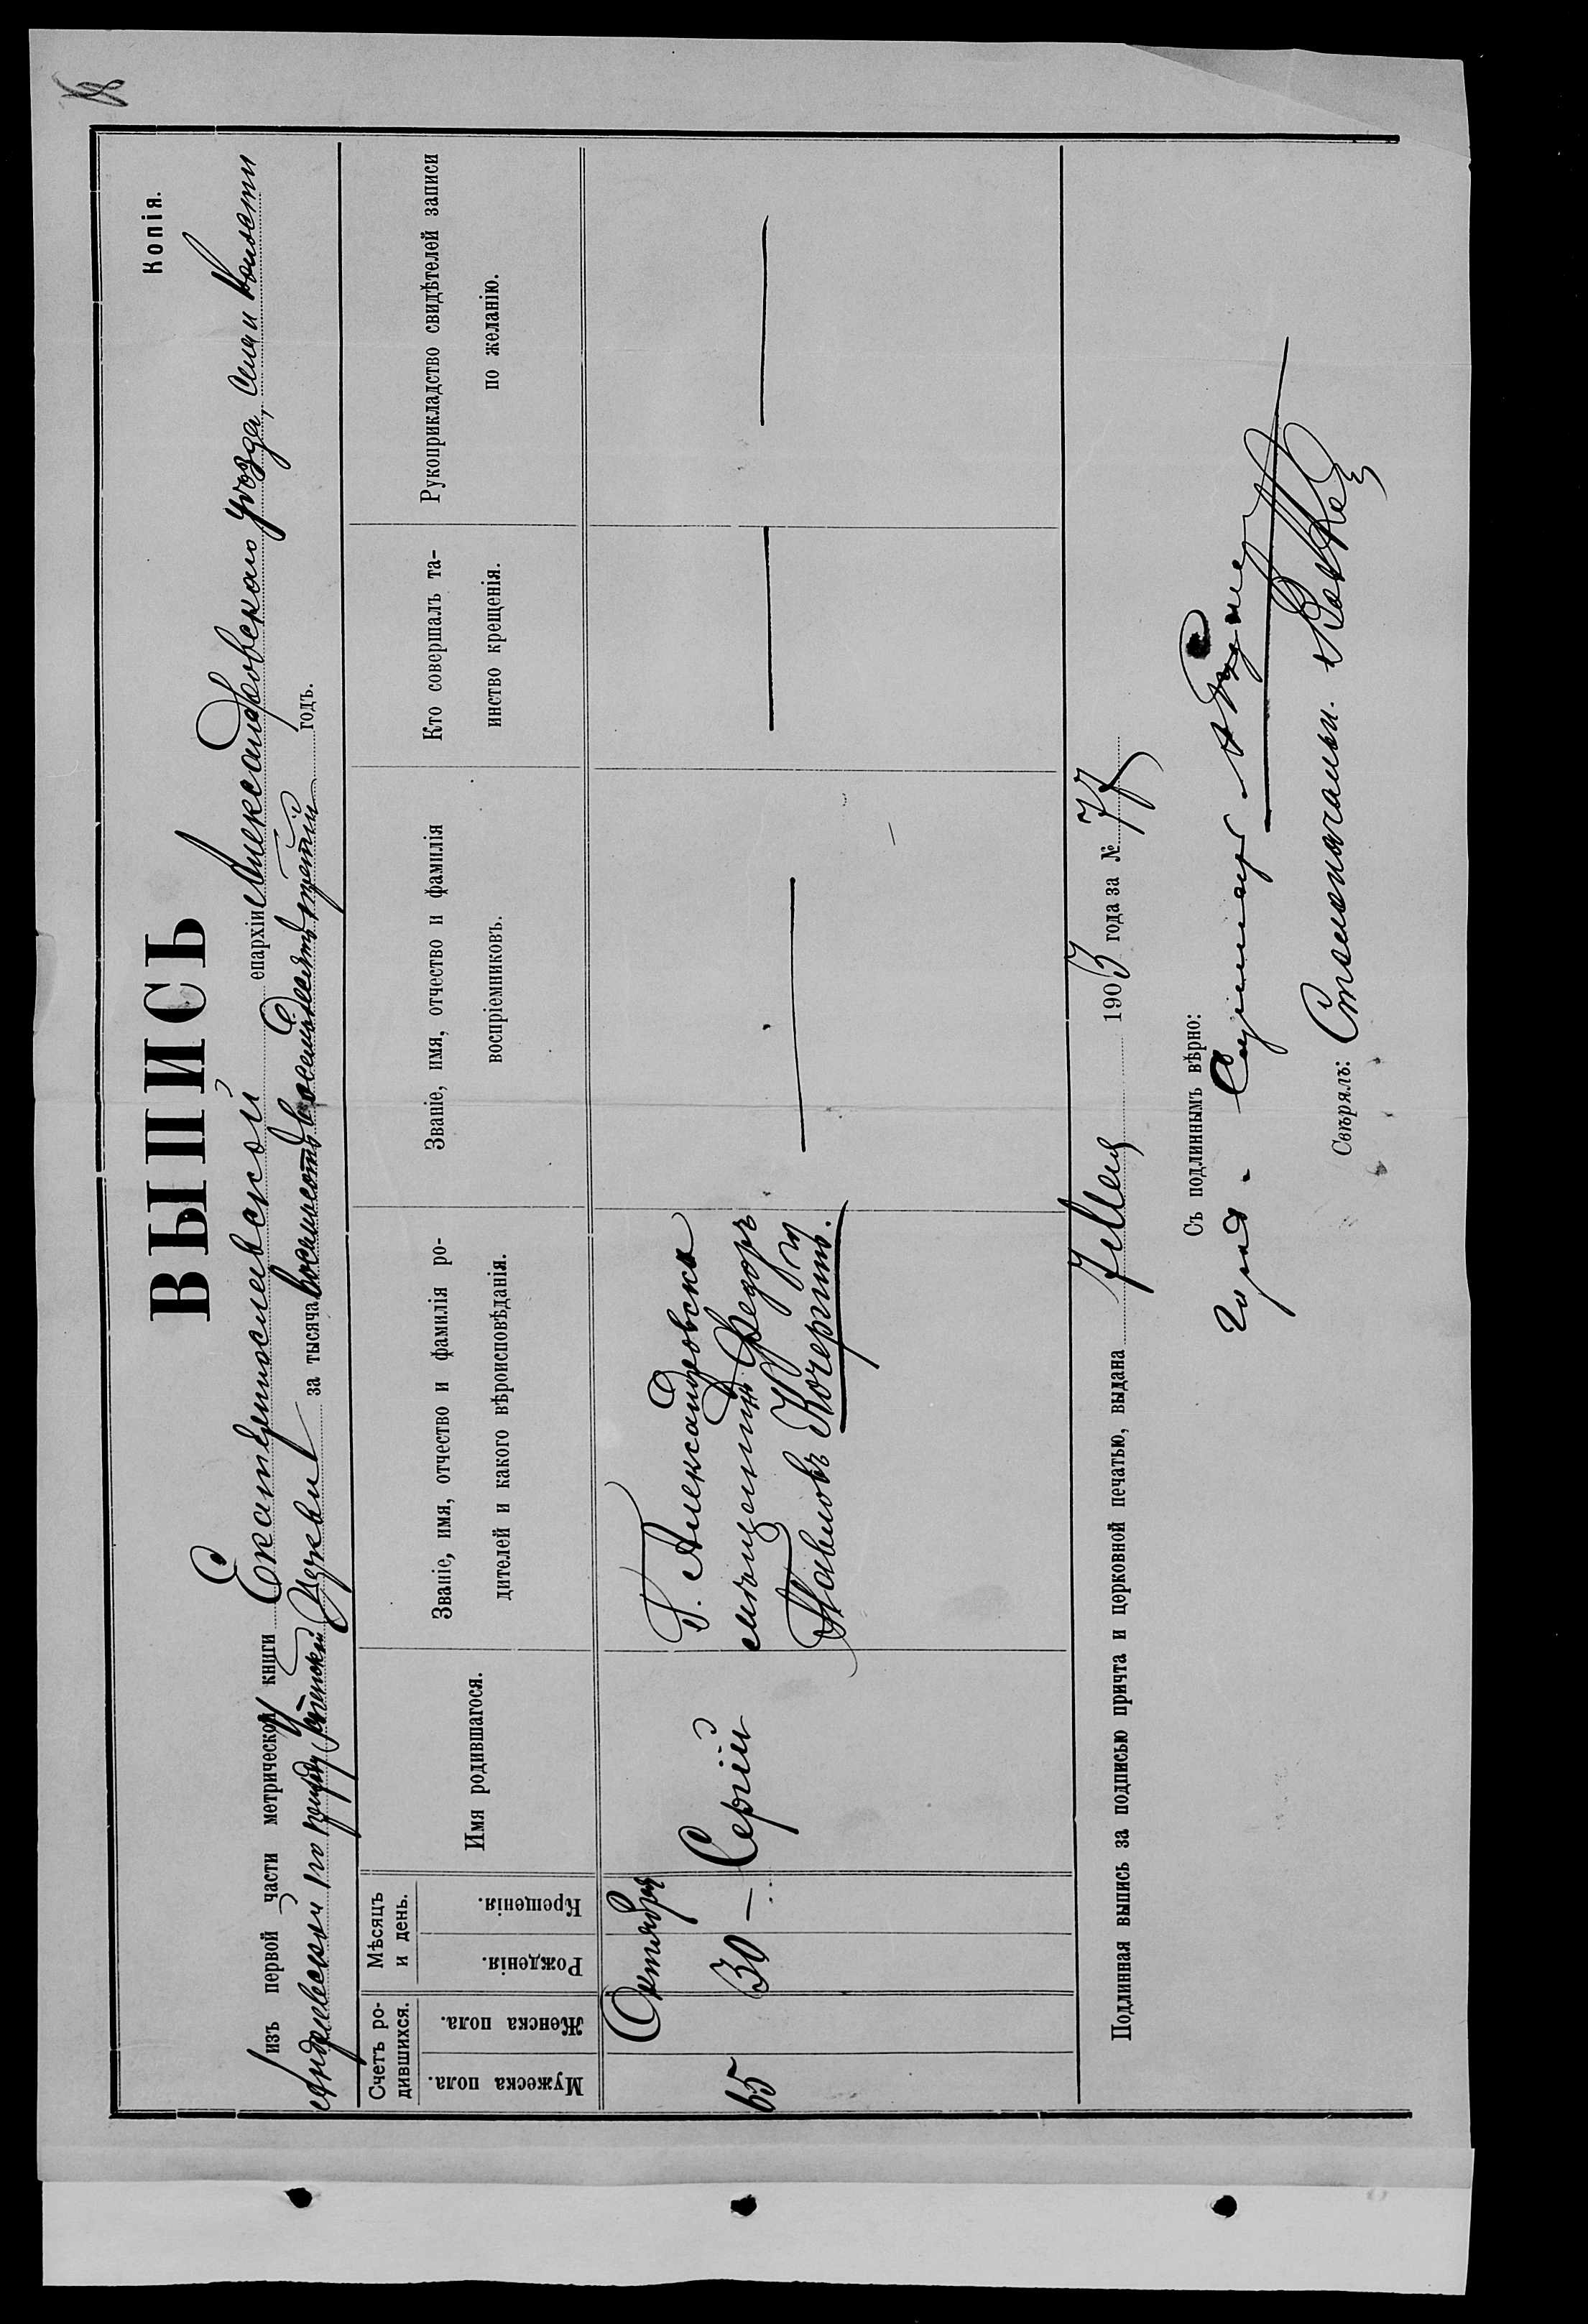 Копія.
ВЫПИСЬ
изъ первой части метрической книги Екатеринославской епархіи Александровскаго уѣзда, села и волости
Андреевской Церкви за тысяча восемьсотъ восемьдесятъ третій годъ.
Счетъ ро-
дившихся.
Мужеска пола.
Женска пола.
Мѣсяцъ
и день.
Рожденія.
Крещенія.
Имя родившагося.
Званіе, имя, отчество и фамилія ро-
дителей и какого вѣроисповѣданія.
Званіе, имя, отчество и фамилія
воспріемниковъ.
Кто совершалъ та-
инство крещенія.
Рукоприкладство свидѣтелей записи
по желанію.
Октября
65 30 — Сергій
Г. Александровска
мѣщанинъ Федоръ
Павловъ Кочергинъ.
Подлинная выпись за подписью причта и церковной печатью, выдана 7 Мая 1903 года за № 77
Съ подлиннымъ вѣрно:
Свѣрялъ: Столоначальн.